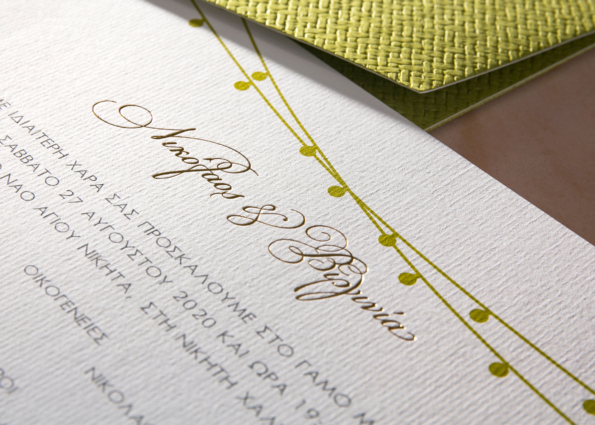 Νικόλαος & Βιργινία
ΜΕ ΙΔΙΑΙΤΕΡΗ ΧΑΡΑ ΣΑΣ ΠΡΟΣΚΑΛΟΥΜΕ ΣΤΟ ΓΑΜΟ Μ
ΣΑΒΒΑΤΟ 27 ΑΥΓΟΥΣΤΟΥ 2020 ΚΑΙ ΩΡΑ 19
ΝΑΟ ΑΓΙΟΥ ΝΙΚΗΤΑ, ΣΤΗ ΝΙΚΗΤΗ ΧΑΛ
ΟΙΚΟΓΕΝΕΙΕΣ
ΡΟΙ ΝΙΚΟΛΑ